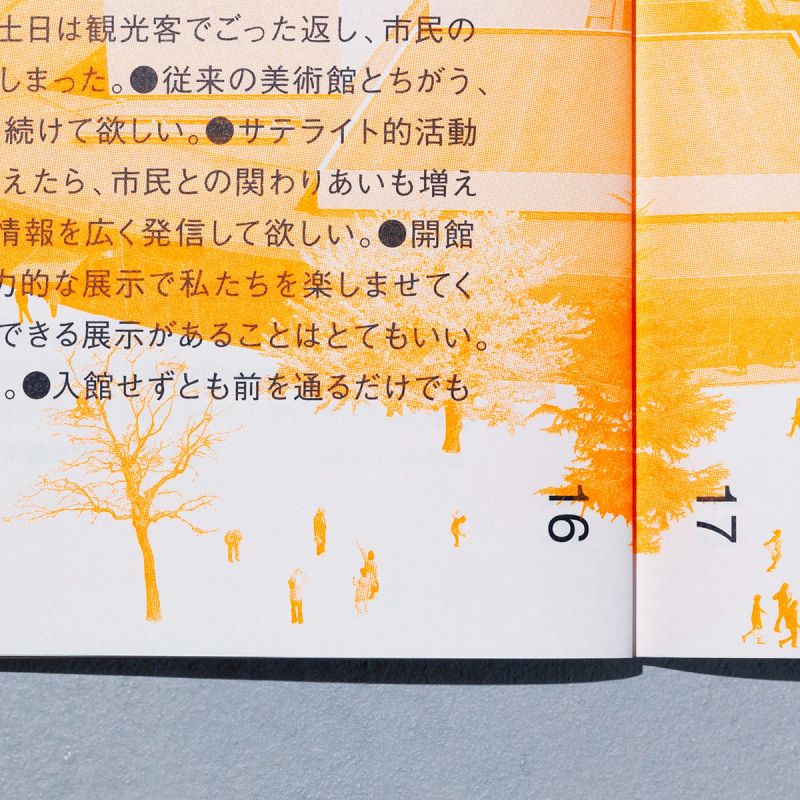 土日は観光客でごった返し、市民の
しまった。●従来の美術館とちがう、
続けて欲しい。●サテライト的活動
えたら、市民との関わりあいも増え
情報を広く発信して欲しい。●開館
力的な展示で私たちを楽しませてく
できる展示があることはとてもいい。
。●入館せずとも前を通るだけでも
16
17